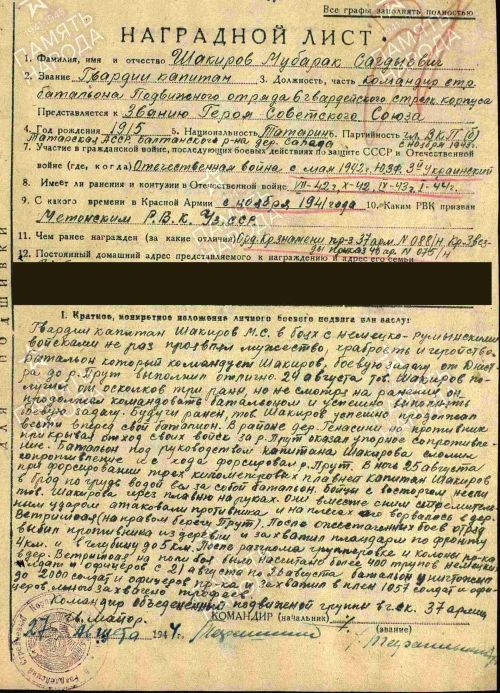 Все графы заполнять полностью
НАГРАДНОЙ ЛИСТ
1. Фамилия, имя и отчество Шакиров Мубарак Сагдыевич
2. Звание Гвардии капитан 3. Должность, часть командир стр.
батальона Подвижного отряда 6 гвардейского стрелк. корпуса
Представляется к Званию Героя Советского Союза
4. Год рождения 1915 5. Национальность Татаринъ 6. Партийность чл. ВКП(б)
Татарская АССР Балтанского р-на дер. Салада с ноября 1943 г.
7. Участие в гражданской войне, последующих боевых действиях по защите СССР и Отечественной
войне (где, когда) Отечественная война с мая 1942 г. ЮЗФ. 3й Украинский
8. Имеет ли ранения и контузии в Отечественной войне VII-42 г. X-42, IX-43 г. I-44 г.
9. С какого времени в Красной Армии с ноября 1941 года 10. Каким РВК призван
Метонским Р.В.К. Уз.ССР.
11. Чем ранее награжден (за какие отличия) Орд. Кр. знамени пр-з 37 арм. N 088/н Кр. Звез-
ды приказ 46 ар. N 075/н
12. Постоянный домашний адрес представляемого к награждению и адрес его семьи
I. Краткое, конкретное изложение личного боевого подвига или заслуг
Гвардии капитан Шакиров М.С. в боях с немецко-румынскими
войсками не раз проявлял мужество, храбрость и геройство.
Батальон который командует Шакиров, боевую задачу от Днест
ра до р. Прут выполнил отлично. 24 августа тов. Шакиров по-
лучил от осколков три раны, но не смотря на ранения он
продолжал командовать батальоном и успешно выполнять
боевую задачу. Будучи ранен, тов. Шакиров успешно продолжал
вести вперед свой батальон. В районе дер. Генасени противник
прикрывая отход своих войск за р. Прут оказал упорное сопротивле-
ние. Батальон под руководством капитана Шакирова сломил
сопротивление и с хода форсировал р. Прут. В ночь 25 августа
при форсировании трех километровых плавней капитан Шакиров
в брод по грудь водой вел за собой батальон, бойцы с восторгом несли
тов. Шакирова через плавню на руках. Они вместе с ним стремитель-
ным ударом атаковали противника и на плечах его ворвались в дер.
Ветришоая (на правом берегу Прут). После ожесточенных боев отряд
выбил противника из деревни и захватил плацдарм по фронту
4 км. и в глубину до 5 км. После разгрома группировки и колонны пр-ка
в дер. Ветришоая на поле боя было насчитано более 400 трупов немецких
солдат и офицеров с 21 августа по 26 августа батальон уничтожил
до 2000 солдат и офицеров пр-ка и захватил в плен 1057 солдат и офи-
церов, много захвачено трофеев.
Командир объединенной подвижной группы 6 г.ск. 37 армии
гв. майор.
КОМАНДИР (начальник)
(звание)
27 августа 1944 г.
ДЛЯ ПОДШИВКИ
ПАМЯТЬ НАРОДА